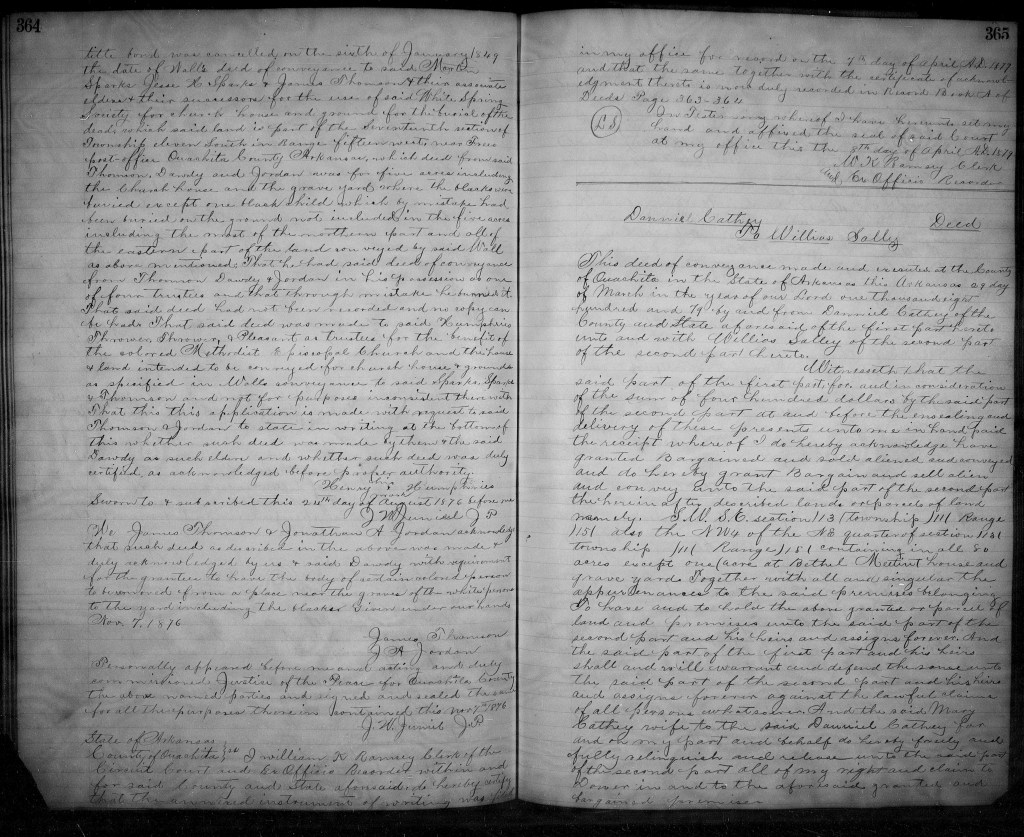 364
title bond was cancelled on the sixth of January 1849
the date of Walls deed of conveyance to said Martin
Sparks Jesse K Sparks & James Thomson & their associate
elders & their successors for the use of said White Spring
Society for church house and ground for the burial of the
dead, which said land is part of the Seventeenth section of
Township eleven South in Range fifteen west near
post-office Ouachita County Arkansas, which deed from said
Thomson, Dawdy and Jordan was for five acres including
the Church house and the grave yard where the blacks were
buried except one black child which by mistake had
been buried on the ground not included in the five acres
including the most of the northern part and all of
the eastern part of the land conveyed by said Wall
as above mentioned. That he had said deed of conveyance
from Thomson Dawdy & Jordan in his possession as one
of four trustees and that through mistake he burned it.
That said deed had not been recorded and no copy can
be had. That said deed was made to said Humphries
Thrower, Thrower, & Pleasant, as trustees for the benefit of
the colored Methodist Episcopal Church and the house
& land intended to be conveyed for church house & grounds
as specified in Walls conveyance to said Sparks, Sparks
& Thomson and not for purposes inconsistent therewith
That this this application is made with request to said
Thomson & Jordan to state in writing at the bottom of
this whether such deed was made by them & the said
Dawdy as such elders and whether such deed was duly
certified, as acknowledged before proper authority.
Henry his mark Humphries
Sworn to & subscribed this 24th day of August 1876 before me
J W Juniel J P
We James Thomson & Jonathan A Jordan acknowledge
that such deed as described in the above was made &
duly acknowledged by us & said Dawdy with requirement
for the grantees to have the body of certain colored person
to be removed from a place near the graves of the white persons
to the yard including the blacks. Given under our hands
Nov 7, 1876
James Thomson
J A Jordan
Personally appeared before me an acting and duly
commissioned Justice of the Peace for Ouachita County
the above named parties and signed and sealed the same
for all the purposes therein contained this Nov 7th 1876
J. W. Juniel J.P
State of Arkansas
County of Ouachita } sct I William K Ramsey Clerk of the
Circuit Court and Ex Officio Recorder within and
for said County and State aforesaid, do hereby certify
that the annexed instrument of writing was filed
365
in my office for record on the 7th day of April A.D. 1879
and that the same together with the certificate of acknowl
edgment thereto is now duly recorded in Record Book A of
Deeds Page 363-364
LS In Testimony whereof I have hereunto set my
hand and affixed the seal of said Court
at my office this the 9th day of April A.D. 1879
W. K Ramsey Clerk
and Ex Officio Recorder
Danniel Cathey Deed
To Willias Salley
This deed of conveyance made and executed at the County
of Ouachita in the State of Arkansas this Arkansas 29 day
of March in the year of our Lord one thousand eight
hundred and 79 by and from Danniel Cathey of the
County and State aforesaid of the first part hereto
unto and with Willias Salley of the second part
of the second part hereto.
Witnesseth that the
said part of the first part, for and in consideration
of the sum of four hundred dollars by the said part
of the second part at and before the ensealing and
delivery of these presents unto me in hand paid
the receipt where of I do hereby acknowledge have
granted Bargained and sold aliened and conveyed
and do hereby grant Bargain and sell alien
and convey unto the said part of the second part
the herein after described lands or parcels of land
namely. S.W. S.E. section /13/ township /11/ Range
/15/ also the NW4 of the NE quarter of section /24/
township /11/ Range /15/ containing in all 80
acres except one acre at Bethel Meeting house and
grave yard. Together with all and singular the
appurtenances to the said premises belonging
To have and to hold the above granted or parcel of
land and premises unto the said part of the
second part and his heirs and assigns forever. And
the said part of the first part and his heirs
shall and will warrant and defend the same unto
the said part of the second part and his heirs
and assigns forever against the lawful claims
of all persons whatsoever. And the said Mary
Cathey wife to the said Danniel Cathey for
and on my part and behalf do hereby freely and
fully relinquish and release unto the said part
of the second part all of my right and claim to
Dower in and to the aforesaid granted and
bargained premises